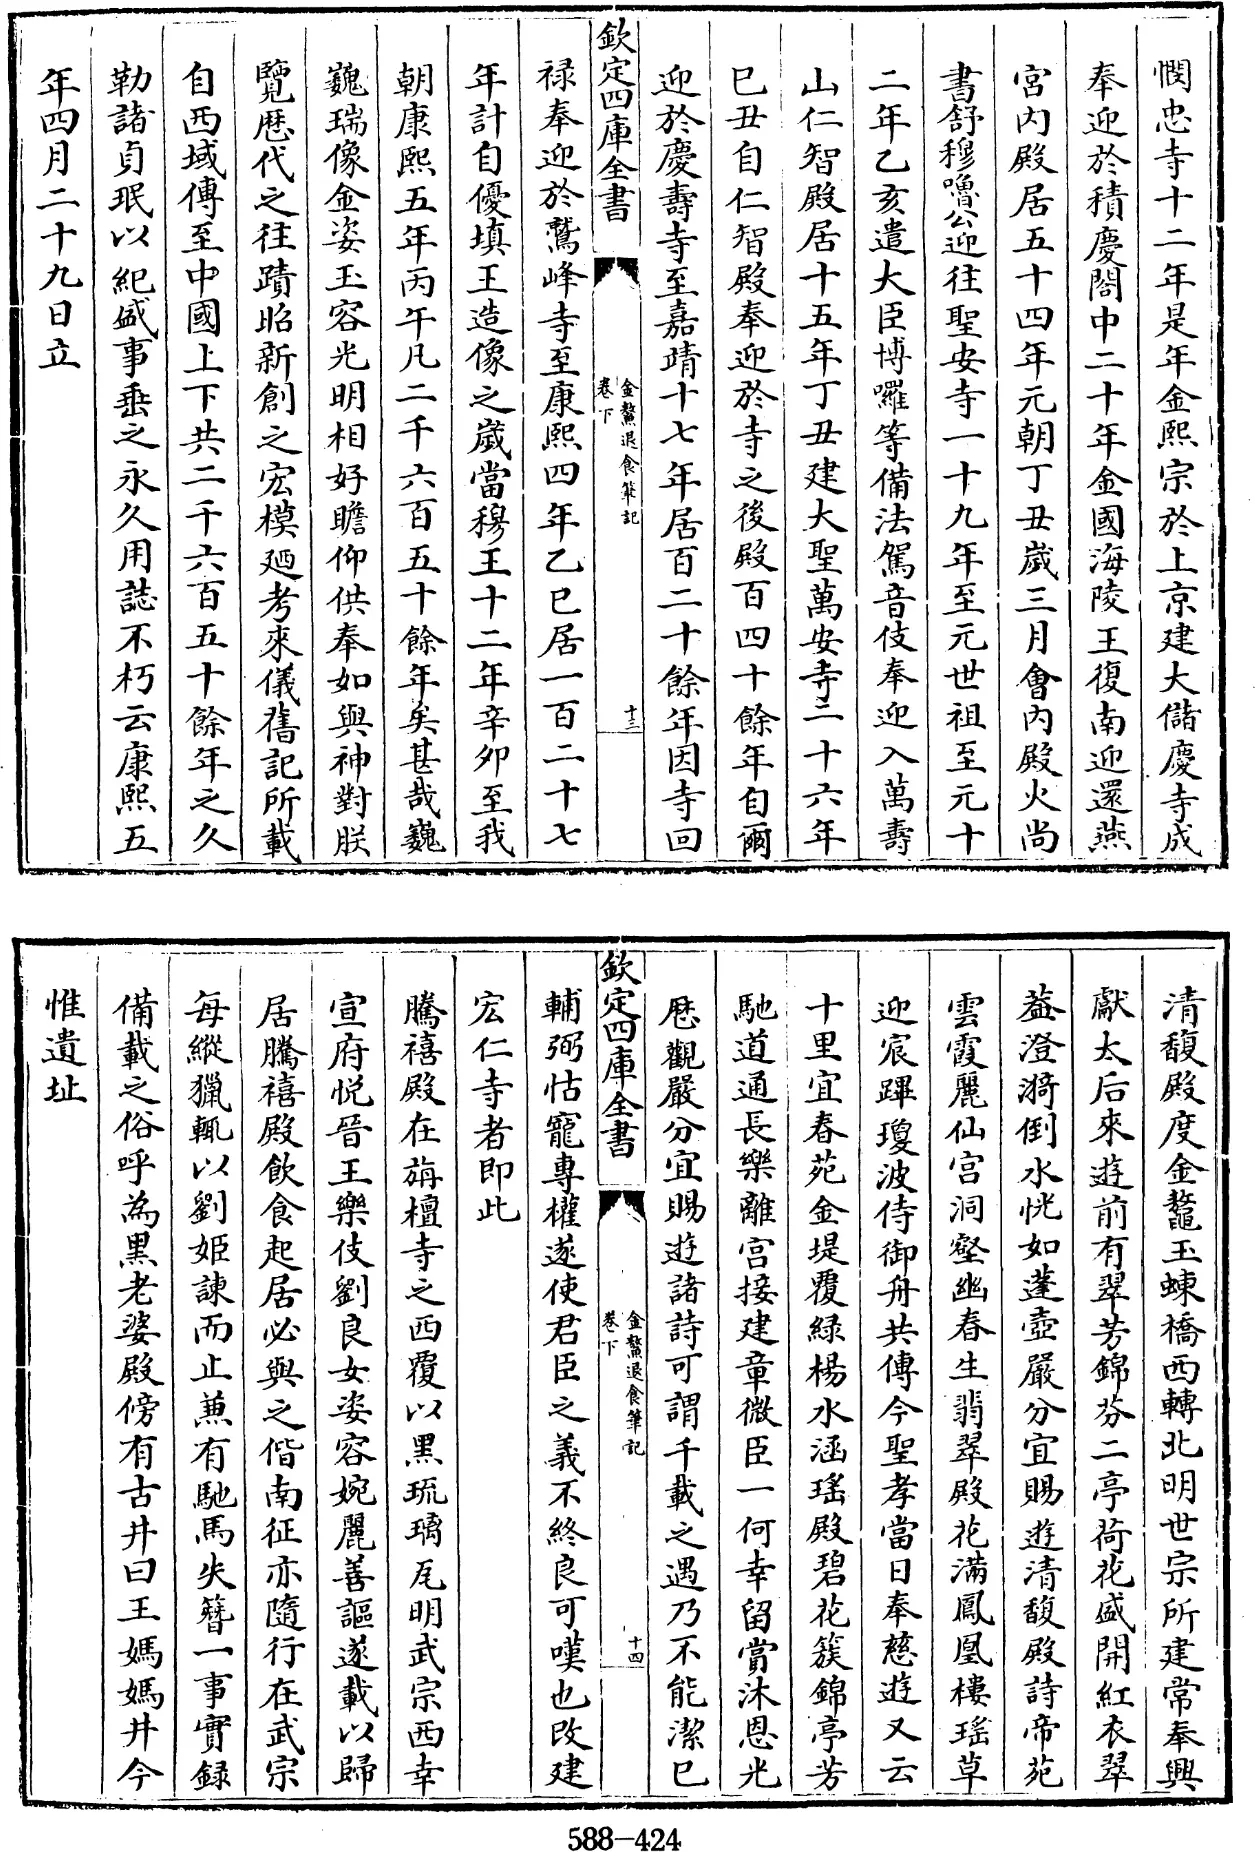 憫忠寺十二年是年金熙宗於上京建大儲慶寺成
奉迎於積慶閣中二十年金國海陵王復南迎還燕
宮内殿居五十四年元朝丁丑歲三月會内殿火尚
書舒穆嚕公迎往聖安寺一十九年至元世祖至元十
二年乙亥遣大臣博囉等備法駕音伎奉迎入萬壽
山仁智殿居十五年丁丑建大聖萬安寺二十六年
巳丑自仁智殿奉迎於寺之後殿百四十餘年自爾
迎於慶壽寺至嘉靖十七年居百二十餘年因寺回
欽定四庫全書
金鰲退食筆記
卷下
十三
禄奉迎於鷲峰寺至康熙四年乙巳居一百二十七
年計自優填王造像之歲當穆王十二年辛卯至我
朝康熙五年丙午凡二千六百五十餘年矣甚哉巍
巍瑞像金姿玉容光明相好瞻仰供奉如與神對朕
覽歴代之往蹟昭新創之宏模廼考來儀舊記所載
自西域傳至中國上下共二千六百五十餘年之久
勒諸貞珉以紀盛事垂之永久用誌不朽云康熙五
年四月二十九日立
清馥殿度金鰲玉蝀橋西轉北明世宗所建常奉興
獻太后來遊前有翠芳錦芬二亭荷花盛開紅衣翠
葢澄漪倒水恍如蓬壺嚴分宜賜遊清馥殿詩帝苑
雲霞麗仙宫洞壑幽春生翡翠殿花滿鳳凰樓瑶草
迎宸蹕瓊波侍御舟共傳今聖孝當日奉慈遊又云
十里宜春苑金堤覆緑楊水涵瑶殿碧花簇錦亭芳
馳道通長樂離宫接建章微臣一何幸留賞沐恩光
歴觀嚴分宜賜遊諸詩可謂千載之遇乃不能潔巳
欽定四庫全書
金鰲退食筆記
卷下
十四
輔弼怙寵專權遂使君臣之義不終良可嘆也改建
宏仁寺者即此
騰禧殿在旃檀寺之西覆以黑琉璃瓦明武宗西幸
宣府悦晉王樂伎劉良女姿容婉麗善謳遂載以歸
居騰禧殿飲食起居必與之偕南征亦隨行在武宗
每縱獵輒以劉姬諫而止兼有馳馬失簪一事實録
備載之俗呼為黑老婆殿傍有古井曰王媽媽井今
惟遺址
588-424